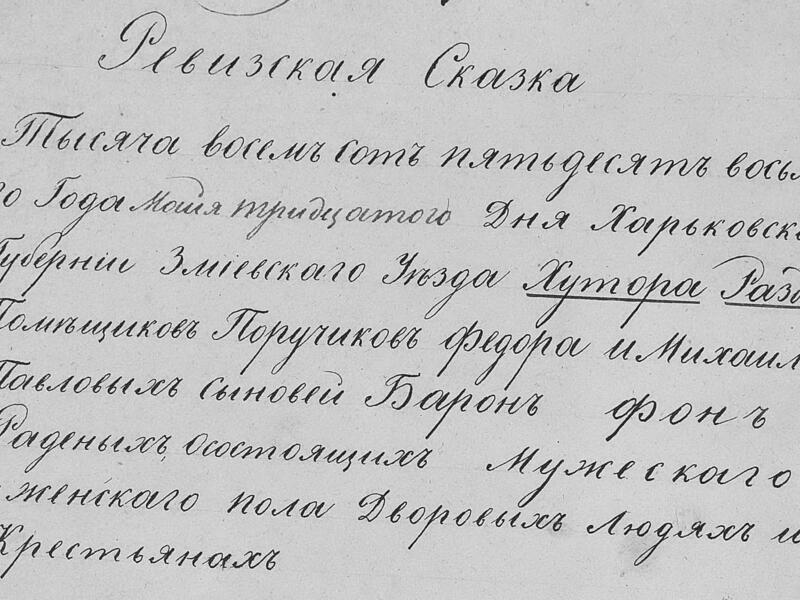 Ревизская Сказка
Тысяча восемъ сотъ пятьдесятъ восьм
го Года Маия тридцатого Дня Харьковск
Губерніи Зміевскаго Уѣзда Хутора Разд
Помѣщиковъ Поручиковъ Федора и Михаил
Павловыхъ сыновей Баронъ фонъ
Раденыхъ, осостоящихъ Мужескаго
женскаго пола Дворовыхъ Людяхъ и
Крестьянахъ